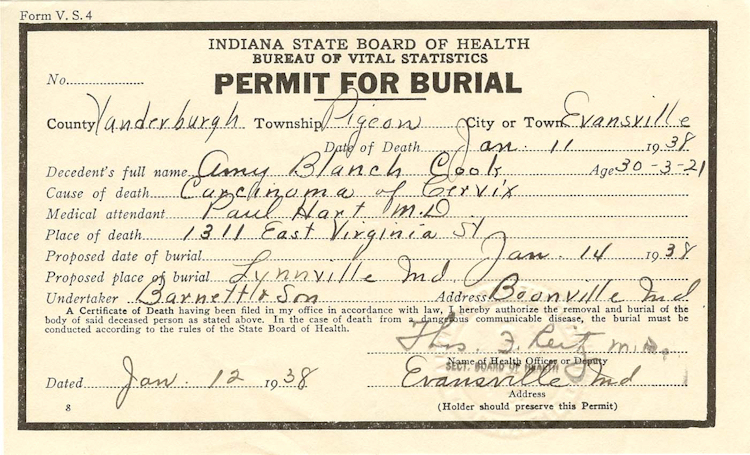 Form V. S. 4
INDIANA STATE BOARD OF HEALTH
BUREAU OF VITAL STATISTICS
No. PERMIT FOR BURIAL
County Vanderburgh Township Pigeon City or Town Evansville
Date of Death Jan. 11 1938
Decedent's full name Amy Blanch Cook Age 30-3-21
Cause of death Carcanoma of Cervix
Medical attendant Paul Hart M.D.
Place of death 1311 East Virginia St
Proposed date of burial Jan. 14 1938
Proposed place of burial Lynnville Ind
Undertaker Barnett & Son Address Boonville Ind
A Certificate of Death having been filed in my office in accordance with law, I hereby authorize the removal and burial of the
body of said deceased person as stated above. In the case of death from a dangerous communicable disease, the burial must be
conducted according to the rules of the State Board of Health.
Thos. F. Reitz M.D.
Name of Health Officer or Deputy
SECT. BOARD OF HEALTH
Dated Jan. 12 1938 Evansville Ind
Address
8 (Holder should preserve this Permit)